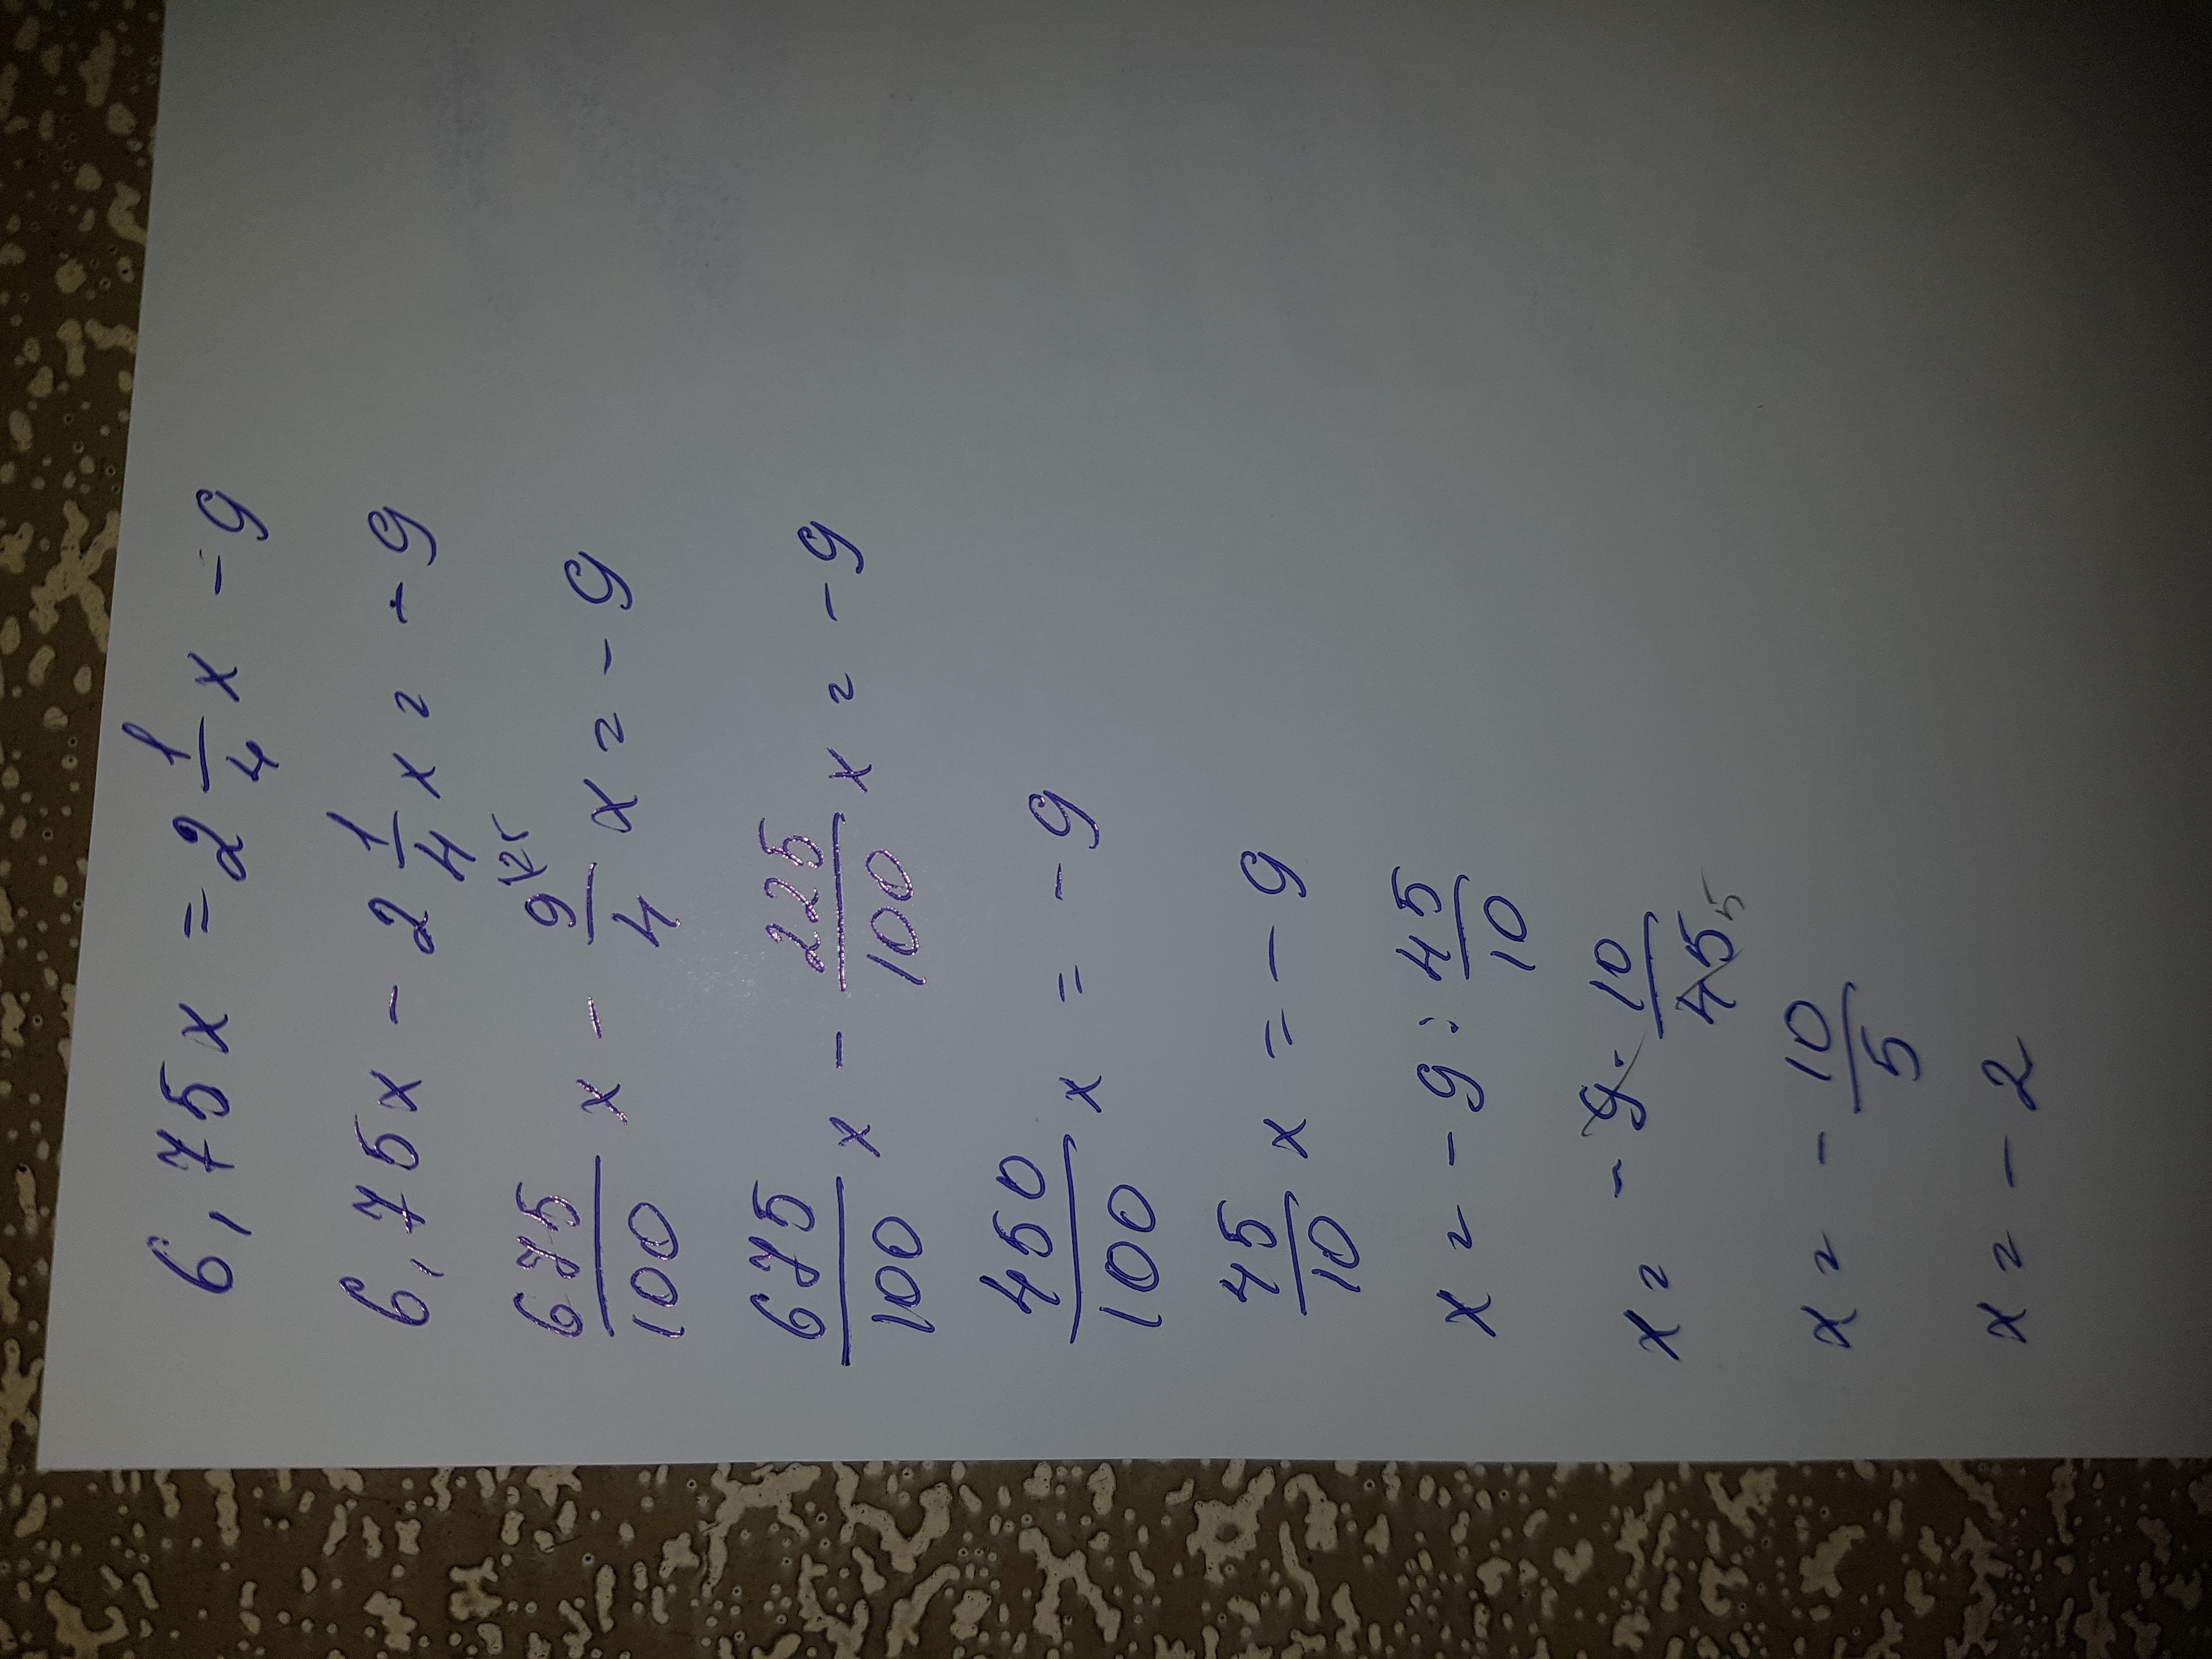 6,75x = 2 1/4 x - 9
6,75x - 2 1/4 x = - 9
675/100 x - 9\25/4 x = - 9
675/100 x - 225/100 x = - 9
450/100 x = - 9
45/10 x = - 9
x = - 9 : 45/10
x = - 9 · 10/45 5
x = - 10/5
x = - 2